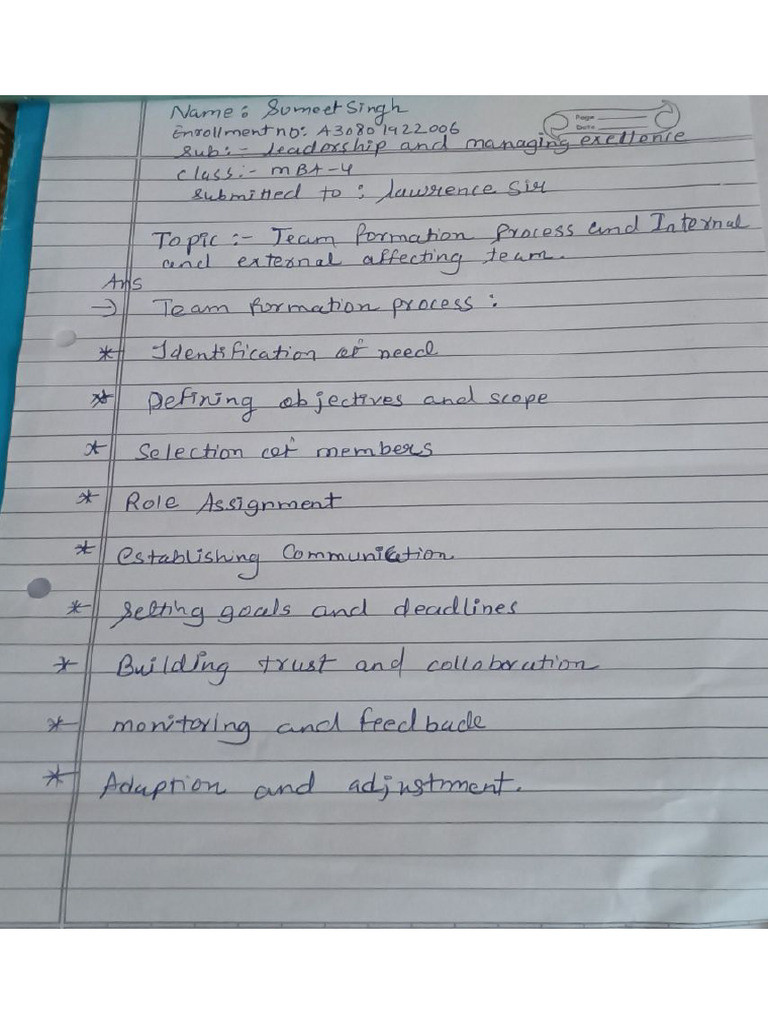 Name: Sumeet Singh
Page
Date
Enrollment no: A30801922006
Sub:- leadership and managing exellence
Class:- MBA-4
Submitted to: Lawrence Sir
Topic:- Team formation Process and Internal
and external affecting team.
Ans
→ Team formation process:
* Identification of need
* Defining objectives and scope
* Selection of members
* Role Assignment
* Establishing Communication
* Setting goals and deadlines
* Building trust and collaboration
* monitoring and feedback
* Adaption and adjustment.